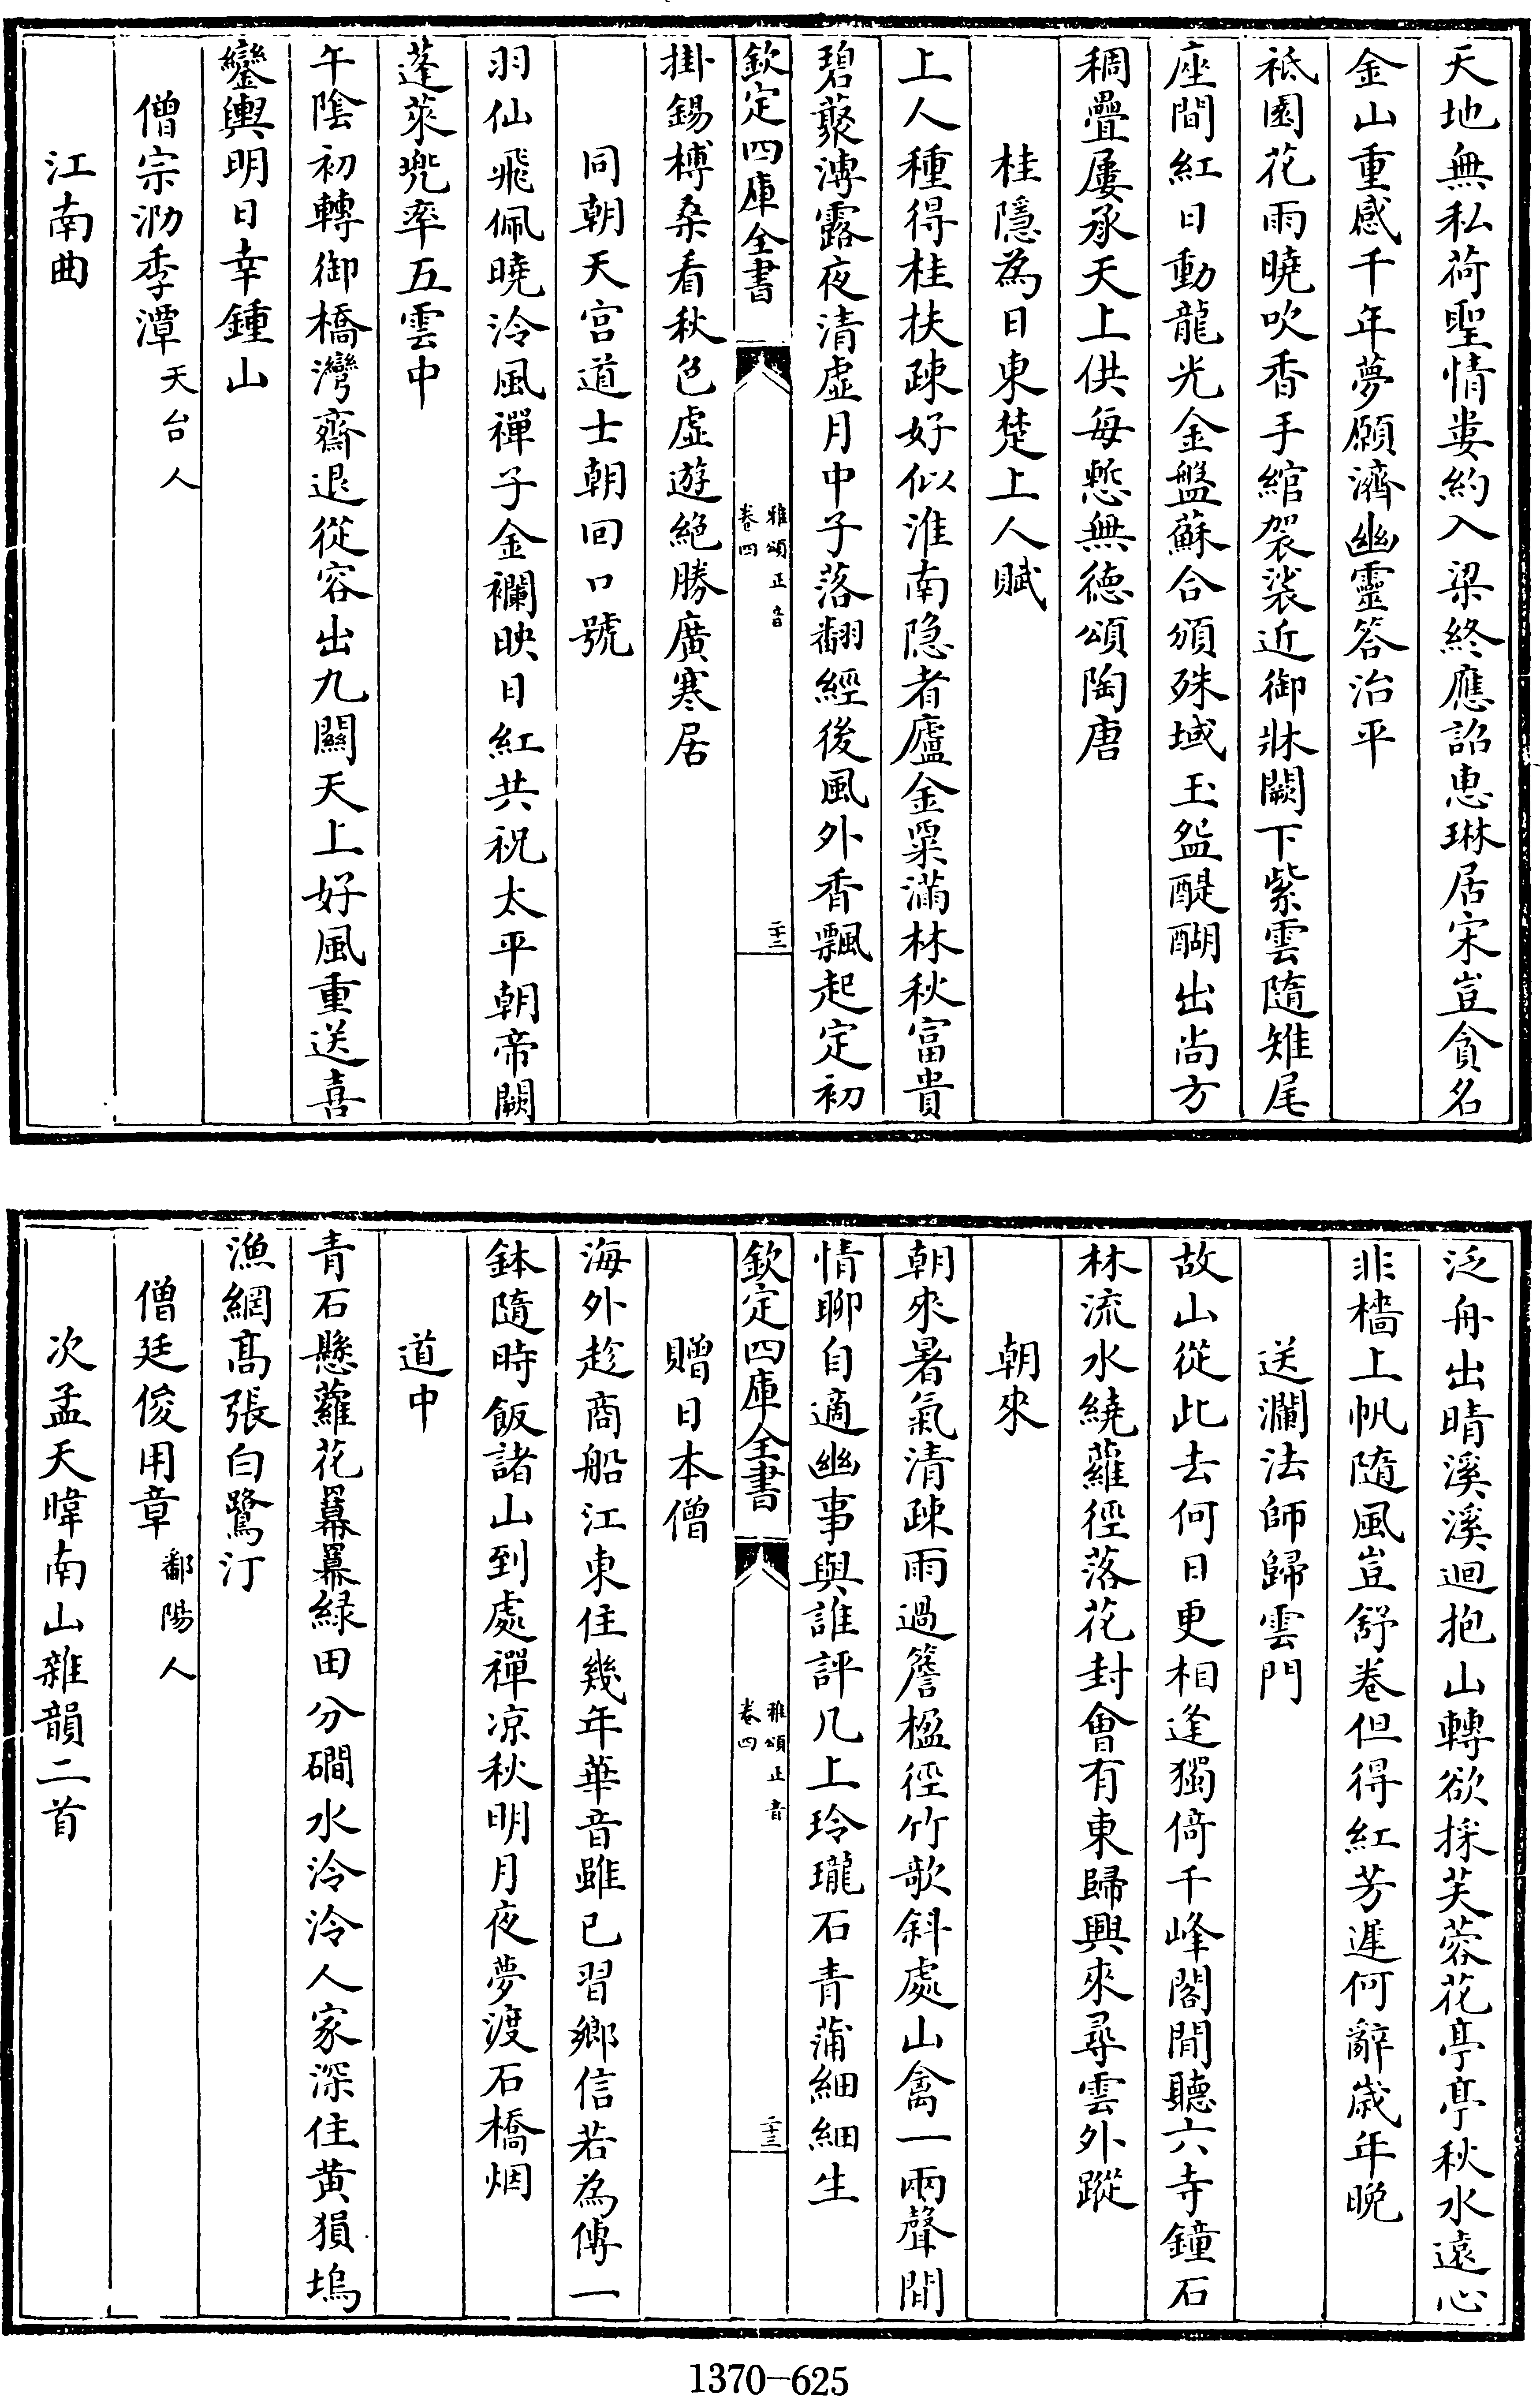 天地無私荷聖情婁約入梁終應詔惠琳居宋豈貪名
金山重感千年夢願濟幽靈答治平
祗園花雨曉吹香手綰袈裟近御牀闕下紫雲隨雉尾
座間紅日動龍光金盤蘇合頒殊域玉盌醍醐出尚方
稠疊屢承天上供每慙無德頌陶唐
桂隱為日東楚上人賦
上人種得桂扶疎好似淮南隐者廬金粟滿林秋富貴
碧藂漙露夜清虛月中子落翻經後風外香飄起定初
欽定四庫全書
雅頌正音
卷四
二十二
掛錫榑桑看秋色虛遊絕勝廣寒居
同朝天宮道士朝回口號
羽仙飛佩曉泠風禪子金襴映日紅共祝太平朝帝闕
蓬萊兜率五雲中
午陰初轉御橋灣齋退從容出九關天上好風重送喜
鑾輿明日幸鍾山
僧宗泐季潭天台人
江南曲
泛舟出晴溪溪迴抱山轉欲採芙蓉花亭亭秋水遠心
非檣上帆隨風豈舒卷但得紅芳遲何辭歲年晚
送瀾法師歸雲門
故山從此去何日更相逢獨倚千峰閣閒聽六寺鐘石
林流水繞蘿徑落花封會有東歸興來尋雲外蹤
朝來
朝來暑氣清疎雨過簷楹徑竹欹斜處山禽一兩聲閒
情聊自適幽事與誰評几上玲瓏石青蒲細細生
欽定四庫全書
雅頌正音
卷四
二十三
贈日本僧
海外趁商船江東住幾年華音雖已習鄉信若為傳一
鉢隨時飯諸山到處禪凉秋明月夜夢渡石橋烟
道中
青石懸蘿花羃羃緑田分磵水泠泠人家深住黄猽塢
漁網髙張白鷺汀
僧廷俊用章鄱陽人
次孟天暐南山雜韻二首
1370—625